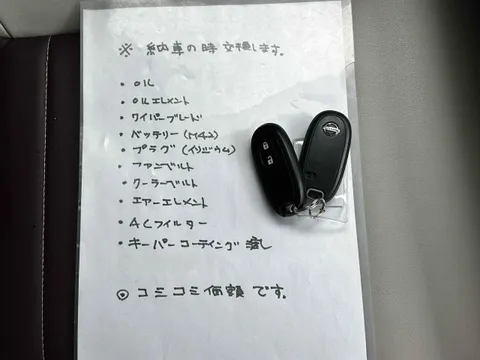 ※ 納車の時交換します。
・OIL
・OILエレメント
・ワイパーブレード
・バッテリー(M42)
・プラグ(イリジウム)
・ファンベルト
・クーラーベルト
・エアーエレメント
・ACフィルター
・キーパーコーティング渡し
◎ コミコミ価額です。